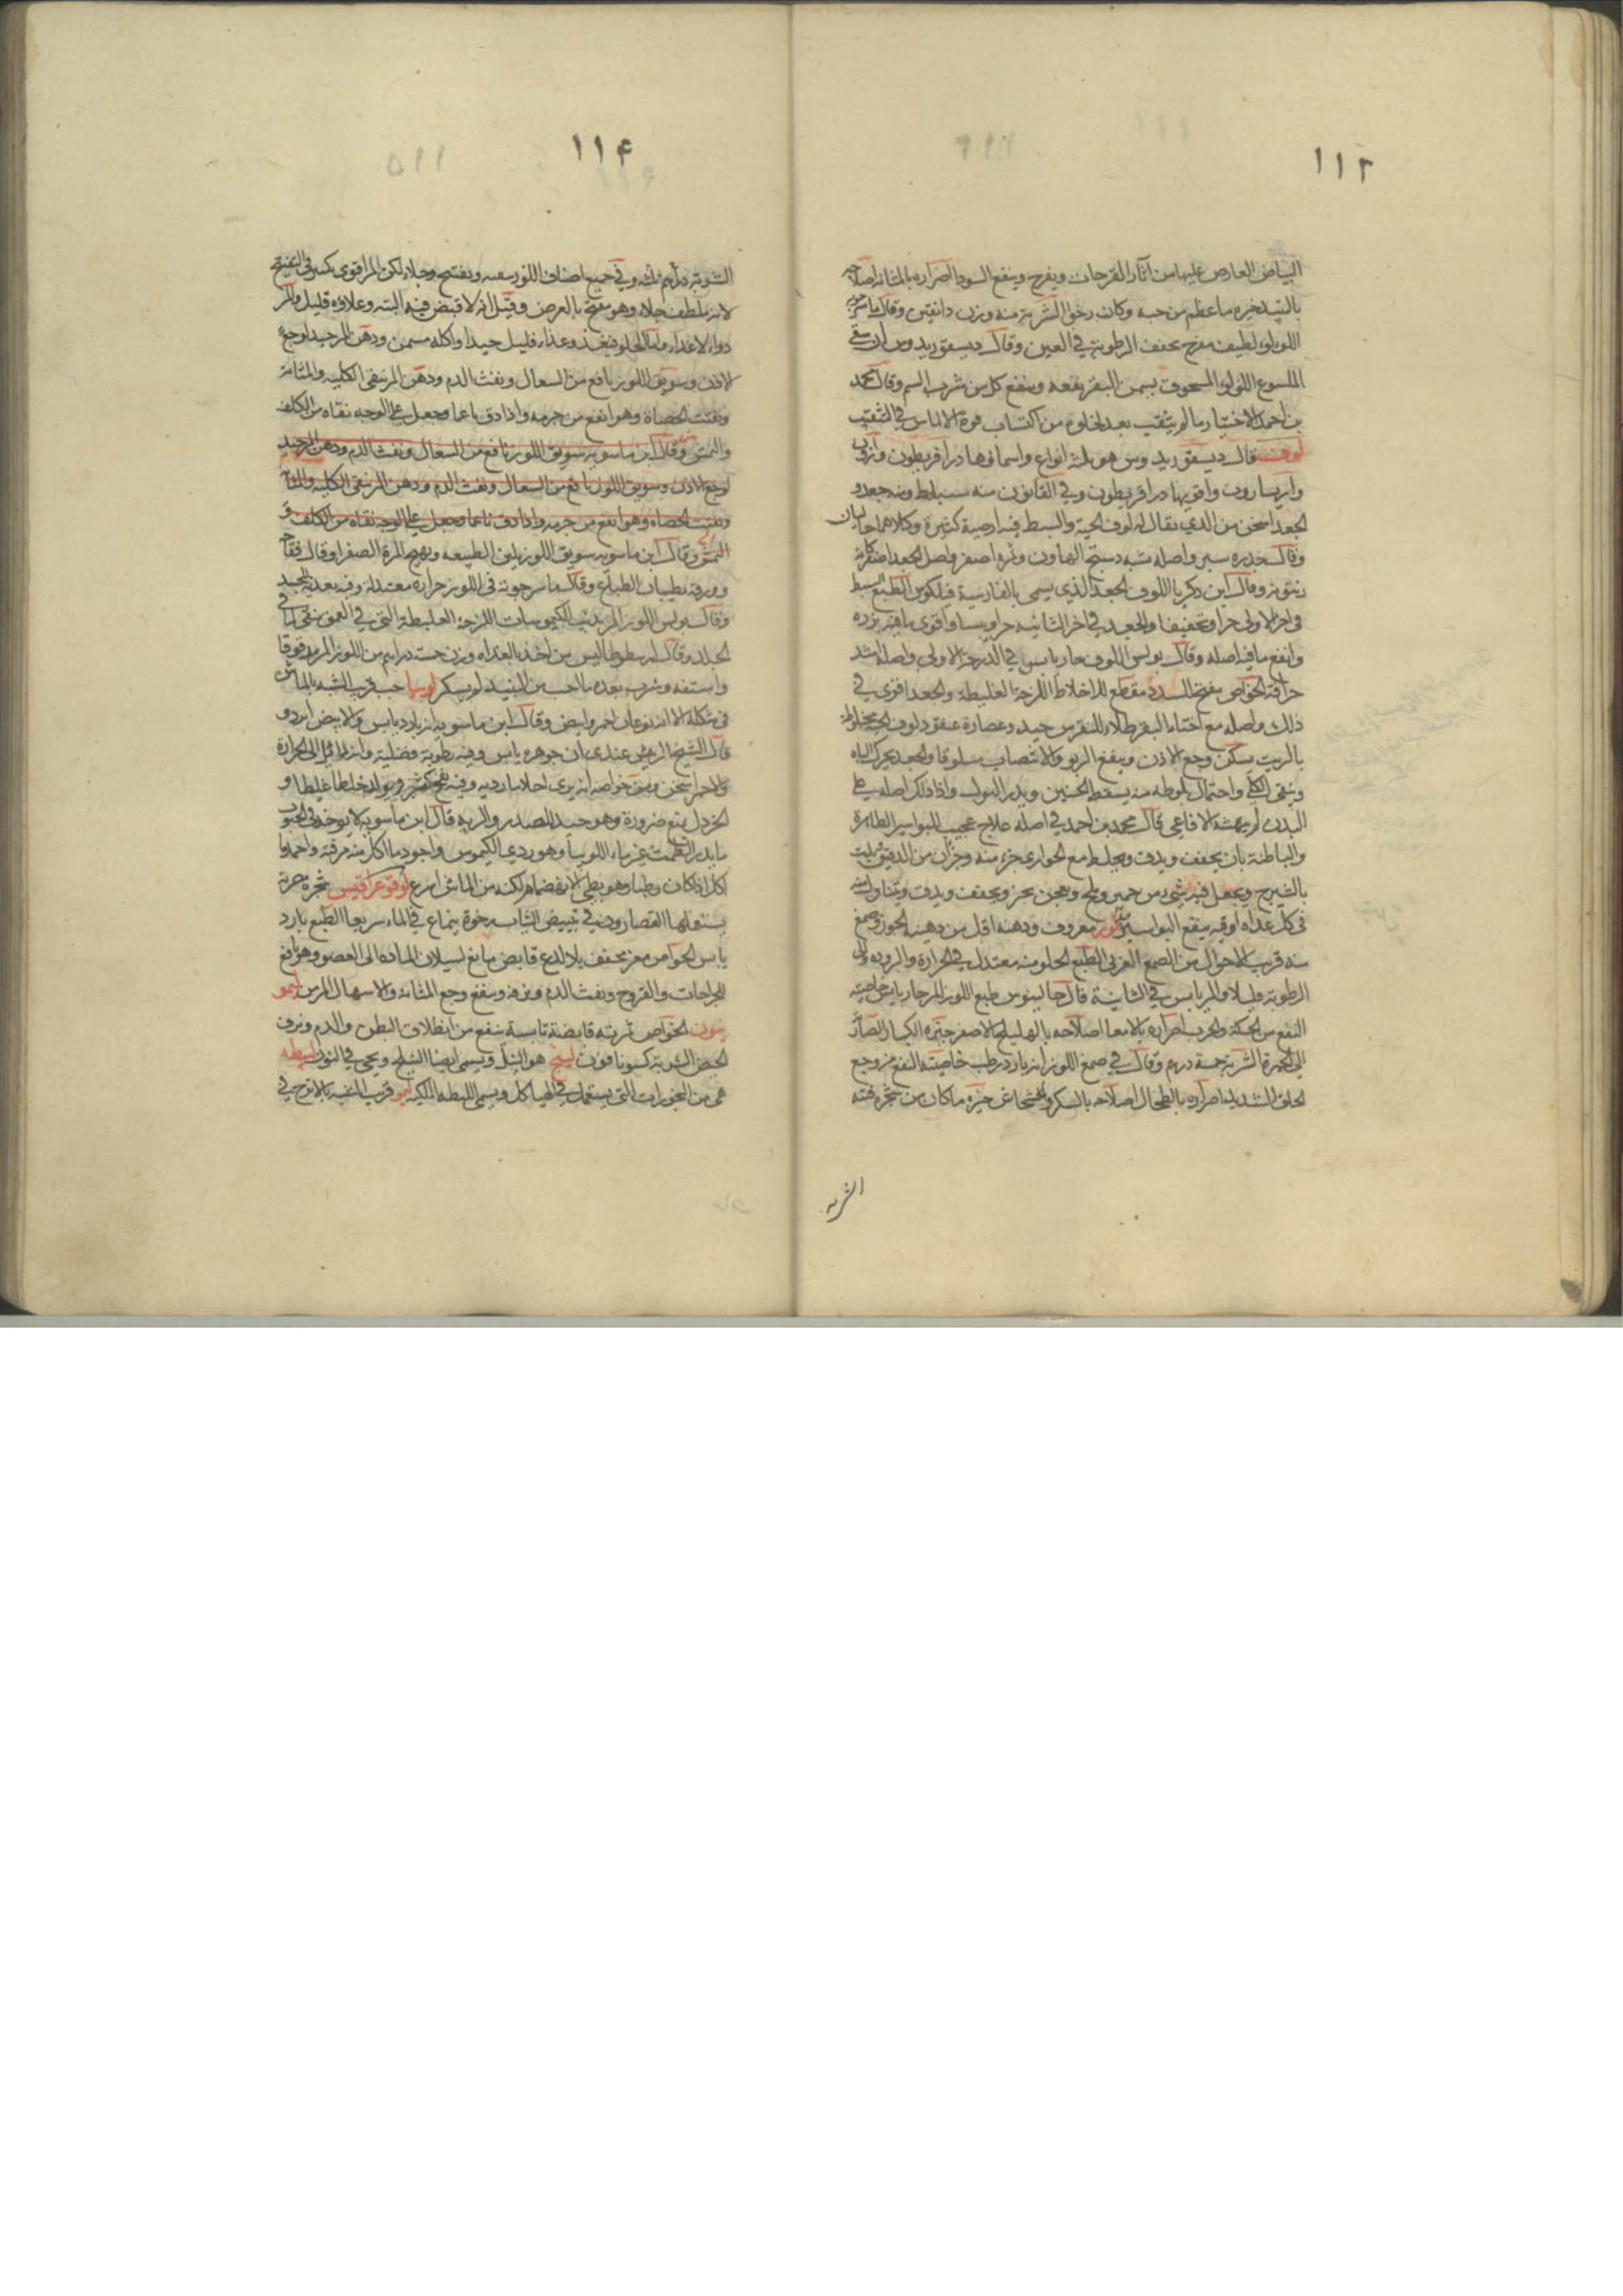 ١١٢
البياض العارض عليها من آثار القرحات ويفرح وينفع السودا اضراره بالمثانة اصلاحه
خيره ما عظم من حبه وكان رخوا الشربة منه وزن دانقين وقال ماسرجويه
اللولو لطيف مفرح يجفف الرطوبة في العين وقال ديسقوريدوس ان سقى
الملسوع اللولو المسحوق بسمن البقر نفعه وينفع كل من شرب السم وقال محمد
بن احمد الاختيار ما لم يثقب بعد لخلوه من اكتساب قوة الالماس في التثقيب
لوف قال ديسقوريدوس هو ثلثة انواع واسماوها دراقريطون
واريسارون واقويها دراقريطون وفي القانون منه سبط ومنه جعد و
الجعد اسخن من الذي يقال له لوف الحية والسبط فيه ارضية كثيرة وكلاهما جاليان
وقال واصله شبه دستج الهاون وثمره اصفر واصل الجعد
وقال ابن زكريا اللوف الجعد الذي يسمى بالفارسية الطبع السبط
في اخر الاولى حرا وتجفيفا والجعد في اخر الثانيه حرا ويبسا واقوى ما فيه بزره
وانفع ما فيه اصله وقال بولس اللوف حار يابس في الدرجة الاولى واصله اشد
حرافة الخواص مفتح للسدد مقطع للاخلاط اللزجة الغليظة والجعد اقوى في
ذلك واصله مع اخثاء البقر طلاء للنقرس جيد وعصارة عنقود لوف الحية مخلوطة
بالزيت يسكن وجع الاذن وينفع الربو والانتصاب مسلوقا والجعد يحرك الباه
وينقى الكلى واحتمال بلوطه منه يسقط الجنين ويدر البول واذا دلك اصله على
البدن لم ينهشه الافاعي قال محمد بن احمد في اصله علاج عجيب للبواسير الظاهرة
والباطنة بان يجفف ويدق ويخلط مع الحوارى جزء منه وجزآن من الدقيق
بالشيرج ويجعل فيه شيء من خمير وملح ويعجن ويخبز ويجفف ويدق ويتناول منه
في كل غداه اوقيه ينفع البواسير لوز معروف ودهنه اقل من دهنية الجوز وصمغ
منه قريب الاحوال من الصمغ العربى الطبع الحلو منه معتدل في الحرارة والبروده
الرطوبة قليلا والمر يابس في الثانية قال جالينوس طبع اللوز المر حار يابس خاصيته
النفع من الحكة والجرب اضراره بالامعا اصلاحه بالهليلج الاصفر خيره الكبار
الى الحمرة الشربة خمسة درهم وقال في صمغ اللوز انه بارد رطب خاصيته النفع من وجع
الحلق الشديد اضراره بالطحال اصلاحه بالسكر والخشخاش خيره ما كان من شجرة فتية
الشربه
١١٤
الشربة درهم ثلثه وفي جميع اصناف اللوز وتفتيح وجلاء لكن المر اقوى في التفتيح
لانه يلطف جلاء وهو مفتح بالعرض وقيل انه لا قبض فيه البته وغذاؤه قليل والمر
دواء لا غذاء واما الحلو فيغذ وغذاء قليل جيدا واكله مسمن ودهن المر جيد لوجع
الاذن وسويق اللوز نافع من السعال ونفث الدم ودهن المر ينقى الكليه والمثانة
ويفتت الحصاة وهو انفع من جرمه واذا دق ناعما وجعل على الوجه نقاه من الكلف
والنمش وقال ابن ماسويه سويق اللوز نافع من السعال ونفث الدم ودهن المر جيد
لوجع الاذن وسويق اللوز نافع من السعال ونفث الدم ودهن المر ينقى الكليه والمثانة
ويفتت الحصاه وهو انفع من جرمه واذا دق ناعما وجعل على الوجه نقاه من الكلف و
النمش وقال ابن ماسويه سويق اللوز يلين الطبيعه ويهيج المرة الصفرا وقال فقاح
وورقه يطيبان الطبايع وقال ماسرجويه في اللوز حراره معتدلة وفيه بعد
وقال بولس اللوز المر يذيب الكيموسات اللزجة الغليظة التي في العمق ينقى
الجلد وقال ارسطوطاليس من اخذ بالغداه وزن خمسة دراهم من اللوز المر مدقوقا
واستفه وشرب بعده ما احب من النبيد لم يسكر لوبيا حب قريب الشبه بالماش
في شكله الا انه نوعان احمر وابيض وقال ابن ماسويه انه بارد يابس والابيض ابرد و
قال الشيخ الرئيس عندى ان جوهره يابس وفيه رطوبة فضلية وانه الى الحرارة
والاحمر اسخن ومن خواصه انه يرى احلاما رديه وفيه نفخ كثير ويولد خلطا غليظا و
الخردل يمنع ضرورة وهو جيد للصدر والريه قال ابن ماسويه لا يوجد في الحبوب
ما يدر الطمث غير ماء اللوبيا وهو ردي الكيموس واجود ما اكل منه مرقته واحمد ما
اكل اذا كان رطبا وهو بطى الانهضام لكنه من الماش اسرع لوقوغرافيس شجرة حرية
يستعملها القصارون في تبييض الثياب رخوة ينماع في الماء سريعا الطبع بارد
يابس الخواص مغر مجفف بلا لذع قابض مانع لسيلان الماده الى العضو وهو نافع
للجراحات والقروح ونفث الدم وينفع وجع المثانة والاسهال المزمن ليمو
نيون الخواص ثمرته قابضة يابسة ينفع من انطلاق البطن والدم ونزف
الحيض الشربة كسونافون ليلج هو النيل ويسمى ايضا النيلج ويجى في النون ليطه
هي من البخورات التي يستعمل في الهياكل ويسمى الليطه الملكيه ليمو قريب الشبه بالاترج في